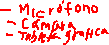 - Micrófono
- Cámara
- Tarjeta gráfica